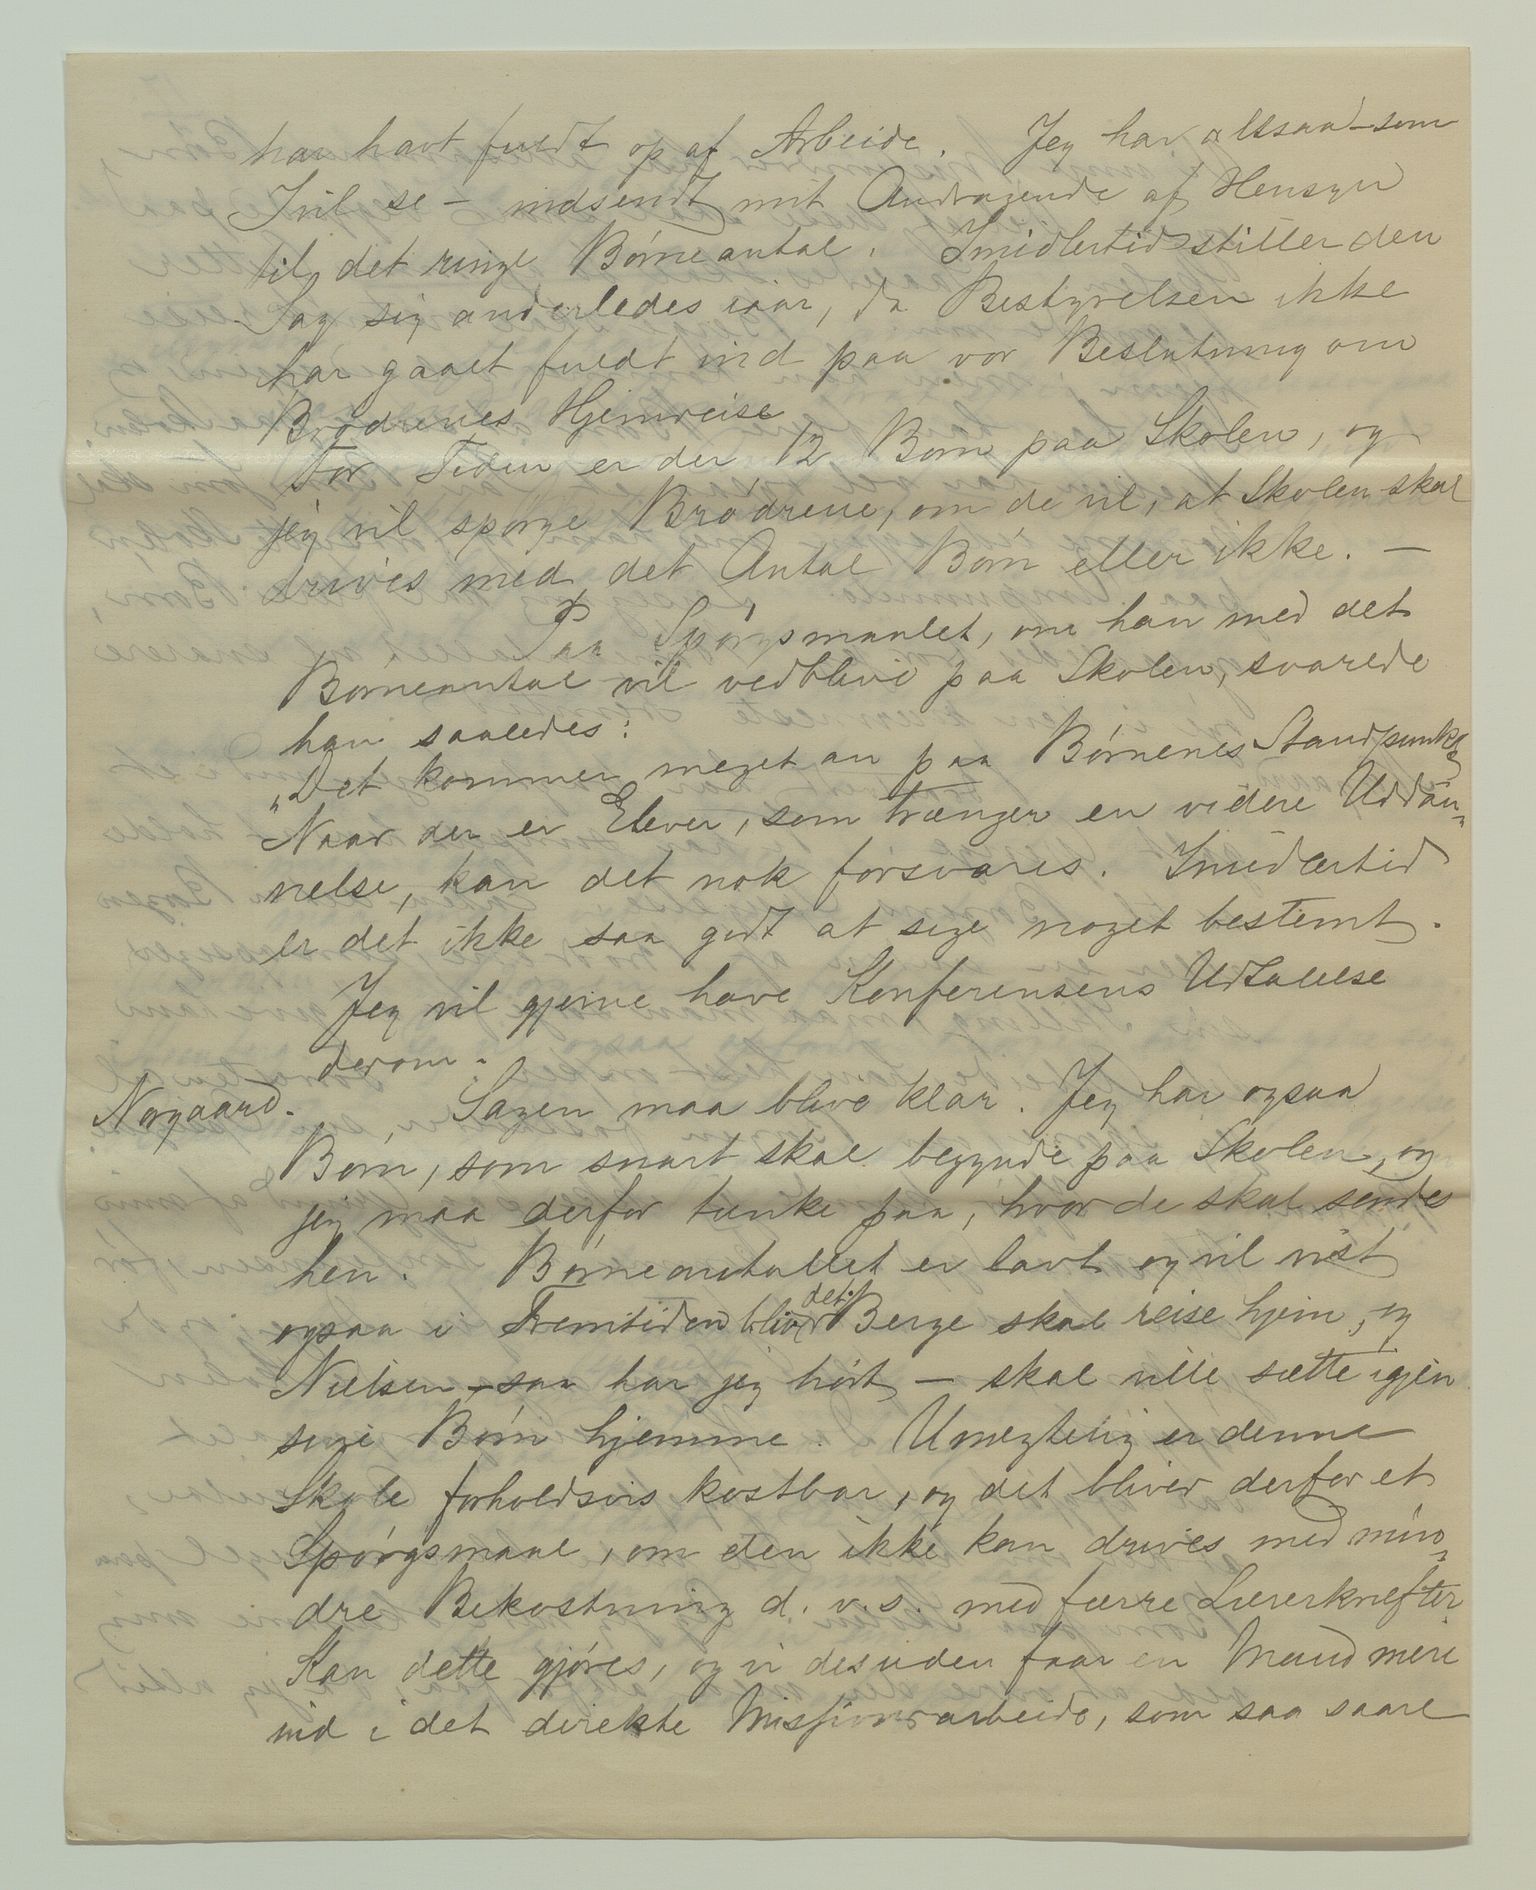 har havt fuldt op af Arbeide. Jeg har altsaa – som
I vil se – indsendt mit Andragende af Hensyn
til det ringe Børneantal. Imidlertid stiller den
Sag sig anderledes iaar, da Bestyrelsen ikke
har gaaet fuldt ind paa vor Beslutning om
Brødrenes Hjemreise
For Tiden er der 12 Børn paa Skolen, og
jeg vil spørge Brødrene, om de vil, at Skolen skal
drives med det Antal Børn eller ikke. –
Paa Spørgsmaalet, om han med det
Børneantal vil vedblive paa Skolen, svarede
han saaledes:
"Det kommer meget an paa Børnenes Standpunkt
Naar der er Elever, som trænger en videre Uddan-
nelse, kan det nok forsvares. Imidlertid
er det ikke saa godt at sige noget bestemt.
Jeg vil gjerne have Konferensens Udtalelse
derom.
Nørgaard. Sagen maa blive klar. Jeg har ogsaa
Børn, som snart skal begynde paa Skolen, og
jeg maa derfor tænke paa, hvor de skal sendes
hen. Børneantallet er lavt og vil vist
ogsaa i Fremtiden blive det. Berge skal reise hjem, og
Nielsen – saa har jeg hørt – skal ville sætte igjen
sine Børn hjemme. Unegtelig er denne
Skole forholdsvis kostbar, og det bliver derfor et
Spørgsmaal, om den ikke kan drives med min-
dre Bekostning d. v. s. med færre Lærerkræfter
Kan dette gjøres, og vi desuden faar en Mand mere
ind i det direkte Missionsarbeide, som saa saare